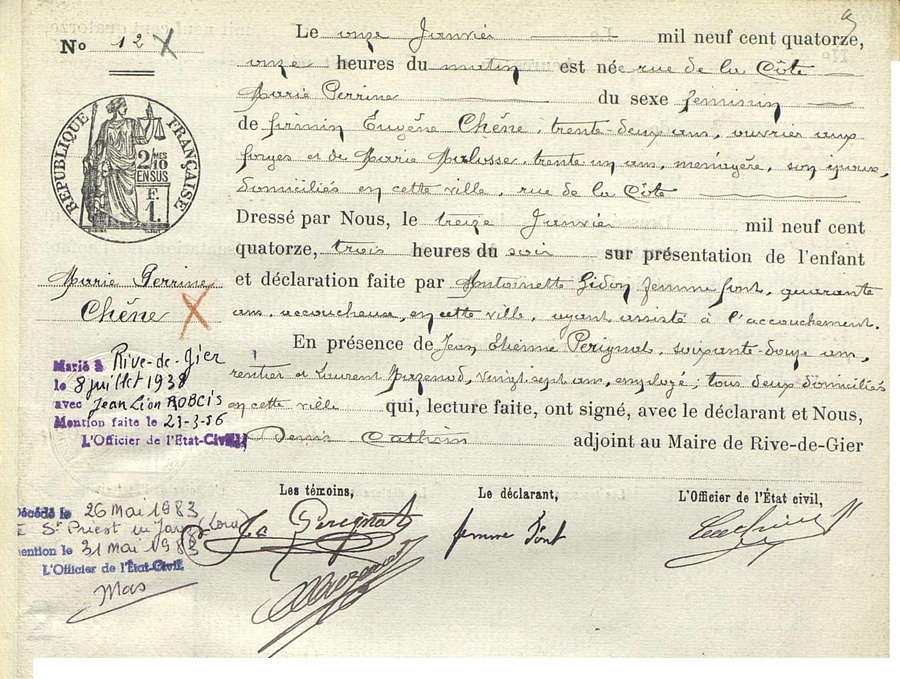 Nº 12
Le onze Janvier mil neuf cent quatorze,
onze heures du matin est née rue de la Côte
Marie Perrine du sexe feminin
de firmin Eugène Chêne, trente-deux ans, ouvrier aux
forges et de Marie Malosse, trente un ans, ménagère, son épouse,
domiciliés en cette ville, rue de la Côte
Dressé par Nous, le treize Janvier mil neuf cent
quatorze, trois heures du soir sur présentation de l'enfant
et déclaration faite par Antoinette Gidon femme font, quarante
ans, accoucheuse, en cette ville, ayant assisté à l'accouchement.
En présence de Jean Etienne Perignat, soixante-douze ans,
rentier et Laurent Mazenod, vingt-sept ans, employé; tous deux domiciliés
en cette ville qui, lecture faite, ont signé, avec le déclarant et Nous,
Denis adjoint au Maire de Rive-de-Gier
RÉPUBLIQUE FRANÇAISE
2/10 MES
EN SUS
F.
1.
Marie Perrine
Chêne
Marié à Rive-de-Gier
le 8 juillet 1938
avec Jean Léon ROBCIS
Mention faite le 23-3-56
L'Officier de l'Etat-Civil,
Décédé le 26 Mai 1983
à St Priest en Jarez (Loire)
mention le 31 Mai 1983
L'Officier de l'État-Civil
Mas
Les témoins,
Le déclarant,
L'Officier de l'État civil,
Perignat
femme font
Mazenod